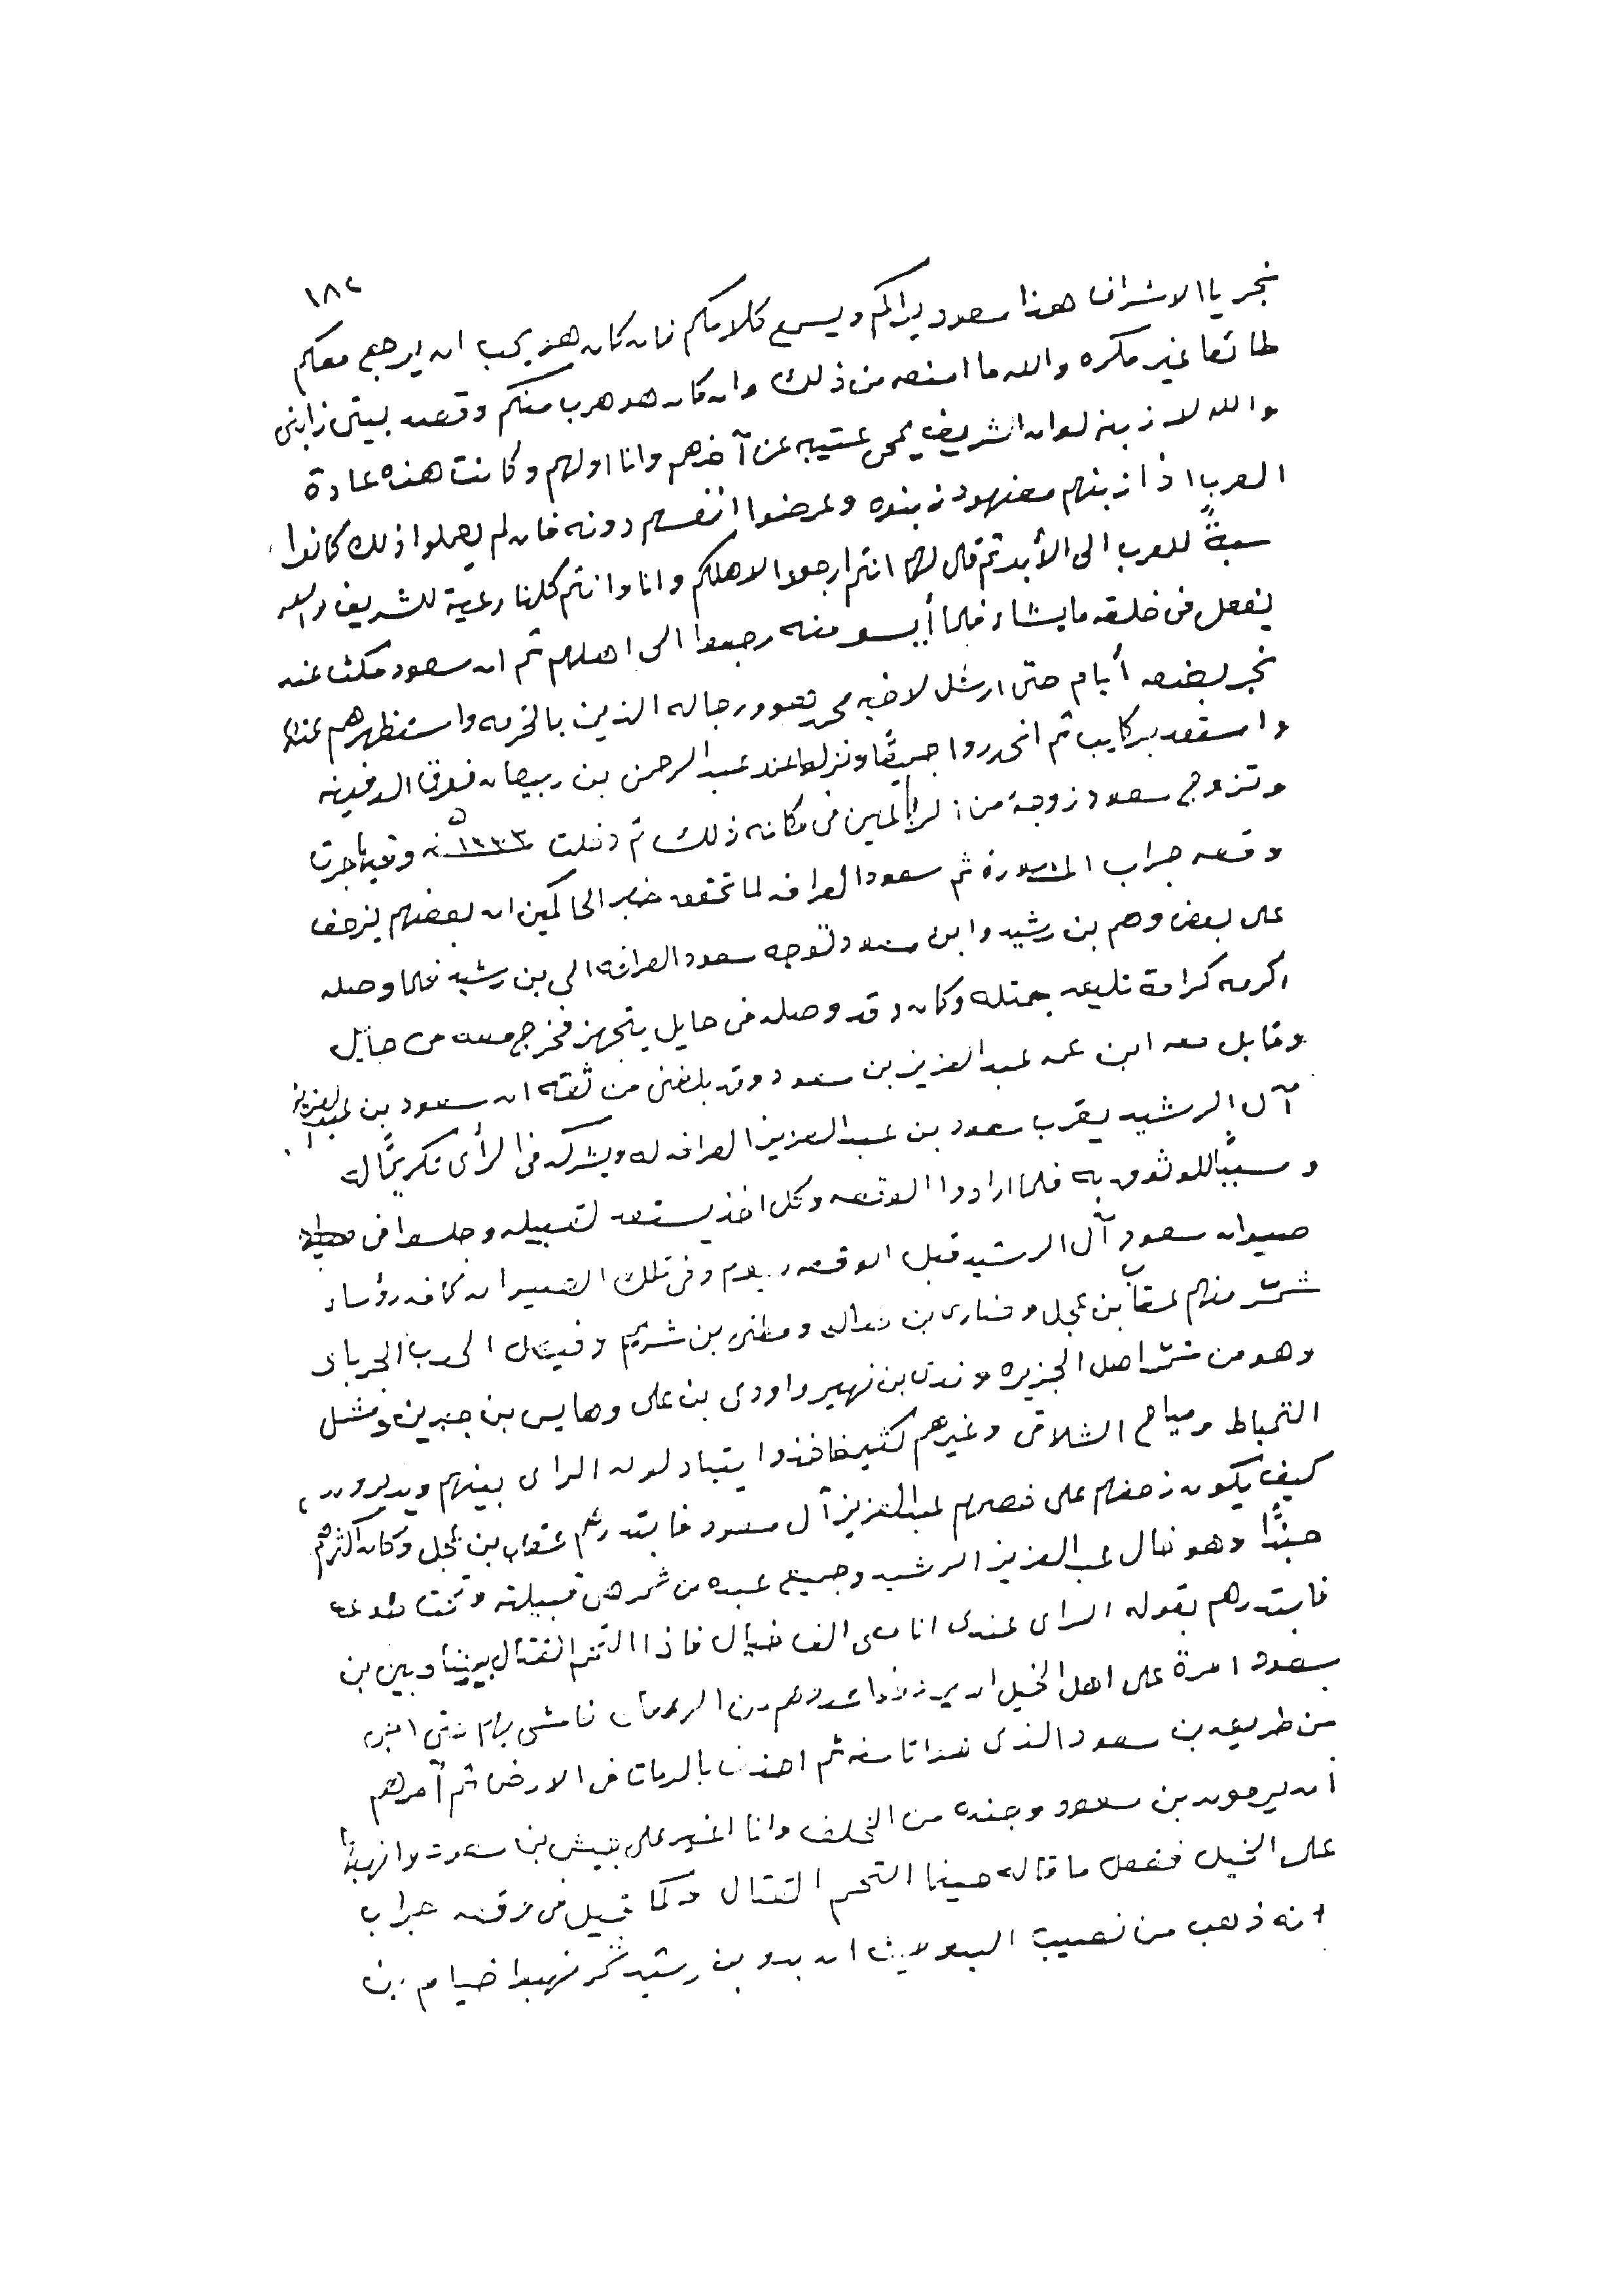 ١٨٢
نجر يا الاشراف هذا سعود يراكم ويسمع كلامكم فان كان هو يحب ان يرجع معكم
طائعا غير مكره والله ما امنعه من ذلك وان كان هو هرب منكم وقصد بيتي زابني
والله لازبنه لو ان الشريف يمحى عتيبه عن آخرهم وانا اولهم وكانت هذه عادة
العرب اذا زبنهم مضهود زبنوه وعرضوا انفسهم دونه فان لم يعملوا ذلك كانوا
سبةً للعرب الى الأبد ثم قال لهم انتم ارجعوا لاهلكم وانا وانتم كلنا رعية للشريف والله
يفعل في خلقه ما يشاء فلما أيسو منه رجعوا الى اهلهم ثم ان سعود مكث عند
نجر بضعه أيام حتى ارسل لاخيه محمد ورجاله الذين بالخرمه واستظهرهم عنده
واستعد بركايب ثم انحدروا جميعًا ونزلوا عند عبد الرحمن بن ربيعان فوق الدفينه
وتزوج سعود زوجة من في مكانه ذلك ثم دخلت سنه ١٣٣٣ه وفيها جرت
وقعه جراب المشهورة ثم سعود العرافه لما تحقق خبر الحاكمين ان بعضهم يزحف
على بعض وهم بن رشيد وابن سعود توجه سعود العرافه الى بن رشيد فلما وصله
اكرمه كرامة تليق بمثله وكان قد وصله في حايل يتجهز فخرج معه من حايل
وقابل معه ابن عمه عبد العزيز بن سعود وقد بلغني من ثقه ان سعود بن عبد العزيز
آل الرشيد يقرب سعود بن عبد العزيز العرافه له ويشركه في الرأى تكريمًا له
وسببًا للوثوق به فلما ارادوا الوقعه وكل اخذ يستعد لقبيله وجلسوا في
صيوان سعود آل الرشيد قبل الوقعه بيوم وفي تلك الصيوان كافه رؤساء
شمّر منهم عقاب بن عجل وضاري بن طواله ومطني بن شريم وفيصل الجربا
وهو من شمّر اهل الجزيره وندى بن نهير واودي بن علي وهايس بن جبرين ومشل
التمياط ومياح الشلاقي وغيرهم كثير فاخذوا يتبادلون الراي بينهم ويديرون
كيف يكون زحفهم على خصمهم عبد العزيز آل سعود فابتدرهم عقاب بن عجل وكان اكثرهم
جندًا وهو خال عبد العزيز الرشيد وجميع عبده من شمر هي قبيلته
فابتدرهم بقوله الراى عندى انا معي الف خيال فاذا التحم القتال بيننا وبين بن
سعود امرة على اهل الخيل ان من الرديفان فامشي بهم حتى اجي
من طريق بن سعود الذي ثم احذف بالرديفان في الارض ثم آمرهم
ان يرمون بن سعود وجنده من الخلف وانا اغير على جيش بن سعود وانهبها
على الخيل ففعل ما قاله حينما التحم القتال وكما قيل في وقعه جراب
انه ذهب من نصيب البدو لان بدو بن رشيد نهبوا خيام بن